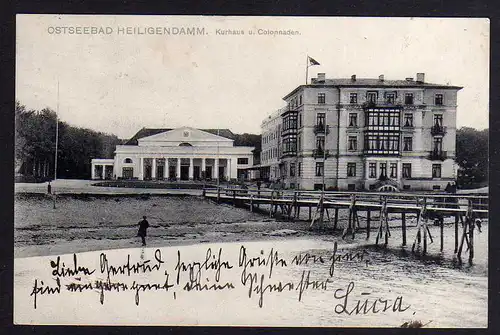 OSTSEEBAD HEILIGENDAMM. Kurhaus u. Colonnaden.
Liebe Gertrud, herzliche Grüße von hier
sind eingeregnet, deine Schwester
Lucia.